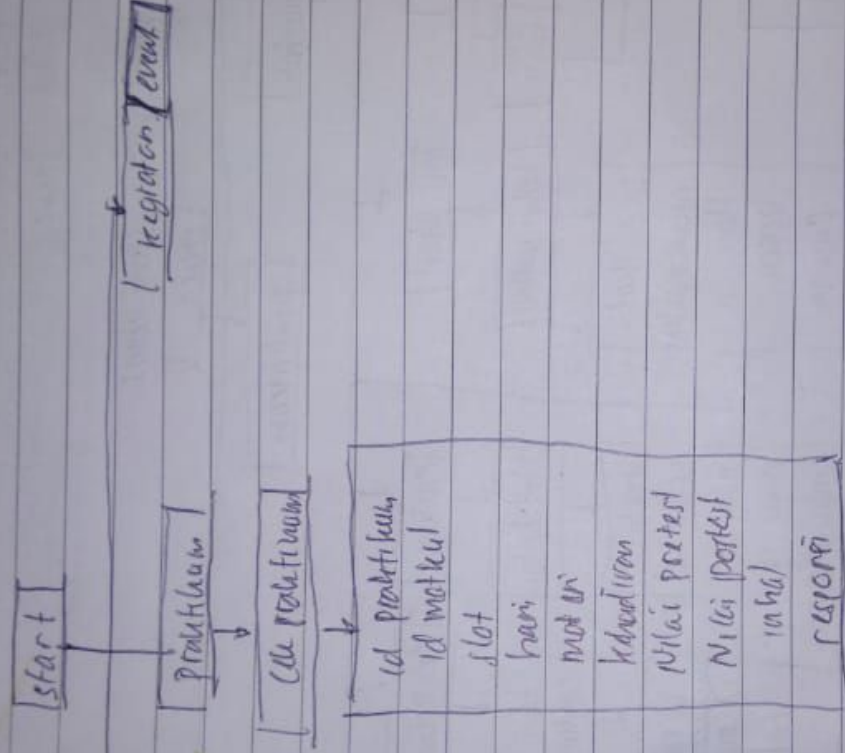 start
kegiatan / event
praktikum
cek praktikum
id praktikum
id matkul
slot
hari
materi
kehadiran
Nilai pretest
Nilai postest
inhal
responsi